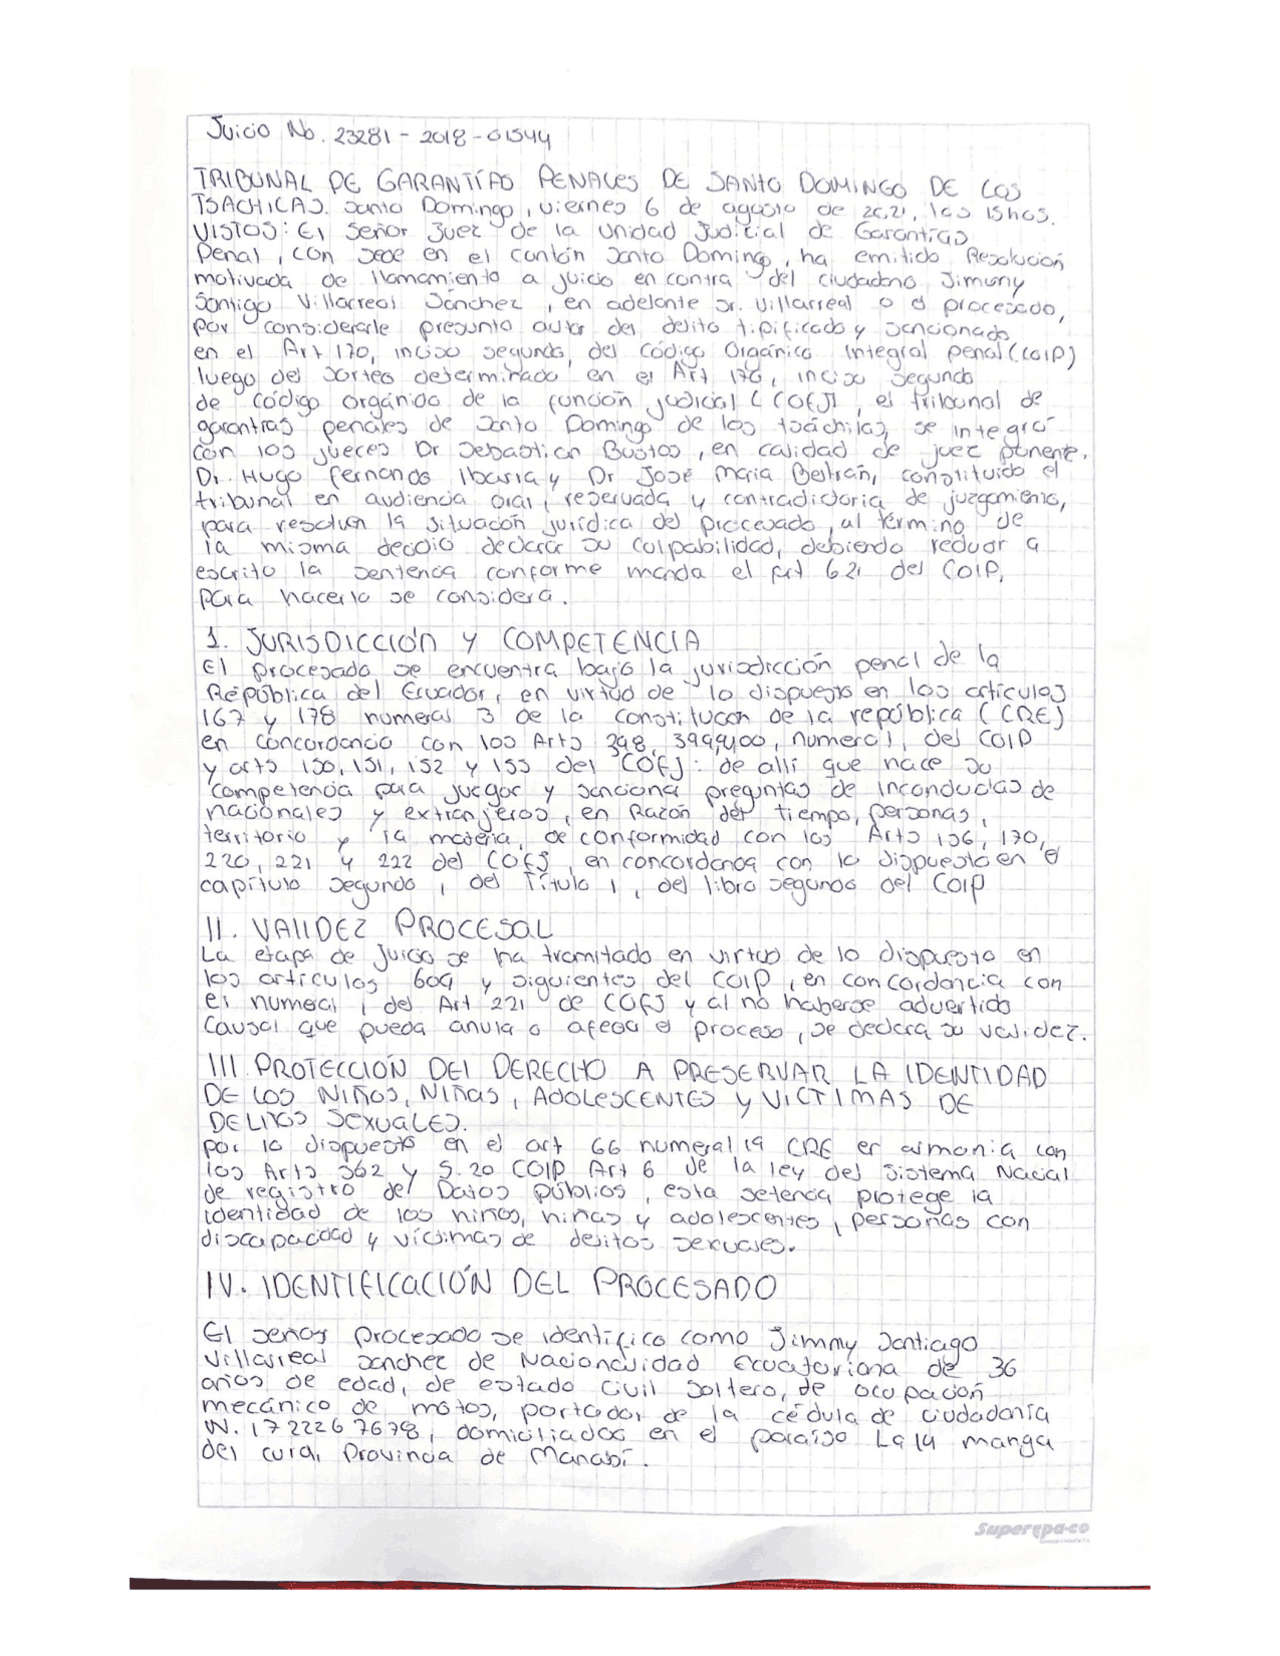 Juicio No. 23281-2018-01544
TRIBUNAL DE GARANTÍAS PENALES DE SANTO DOMINGO DE LOS
TSACHICAS. Santo Domingo, viernes 6 de agosto de 2021, las 15h05.
VISTOS: El Señor Juez de la Unidad Judicial de Garantías
Penal, con sede en el cantón Santo Domingo, ha emitido Resolución
motivada de llamamiento a juicio en contra del ciudadano Jimmy
Santigo Villarreal Sánchez, en adelante Sr. Villarreal o el procesado,
por considerarle presunto autor del delito tipificado y sancionado
en el Art 170, inciso segundo, del Código Orgánico Integral penal (COIP)
luego del sorteo determinado en el Art 170, inciso segundo
de código orgánido de la función judicial (COFJ), el tribunal de
garantras penales de Santo Domingo de los tsáchilas, se integró
con los jueces Dr Sebastian Bustos, en calidad de juez ponente.
Dr. Hugo Fernando Ibarra y Dr José Maria Beltrán, constituido el
tribunal en audiencia oral, reservada y contradictoria de juzgamiento,
para resolver la situación jurídica del procesado, al termino de
la misma decidio declarar su culpabilidad, debiendo reducir a
escrito la sentencia conforme manda el Art 621 del COIP,
para hacerlo se considera.
1. JURISDICCIÓN Y COMPETENCIA
El procesado se encuentra bajo la jurisdicción penal de la
República del Ecuador, en virtud de lo dispuesto en los artículos
167 y 178 numeral 3 de la Constitucon de la república (CRE)
en concordancia con los Arts 398, 399, 400, numeral 1, del COIP
y arts 150, 151, 152 y 155 del COFJ: de allí que nace su
competencia para juzgar y sancionar preguntas de inconductas de
nacionales y extranjeros, en Razón del tiempo, personas,
territorio y la materia, de conformidad con los Arts 156, 170,
220, 221 y 222 del COFJ, en concordancia con lo dispuesto en el
capítulo segundo, del Título 1, del libro segundo del COIP
II. VALIDEZ PROCESAL
La etapa de juicio se ha tramitado en virtud de lo dispuesto en
los artículos 609 y siguientes del COIP, en concordancia con
el numeral 1 del Art 221 de COFJ y al no haberse advertido
Causal que pueda anular o afectar el proceso, se declara su validez.
III PROTECCIÓN DEL DERECHO A PRESERVAR LA IDENTIDAD
DE LOS NIÑOS, NIÑAS, ADOLESCENTES Y VICTIMAS DE
DELITOS SEXUALES.
por lo dispuesto en el art 66 numeral 19 CRE en armonia con
los Arts 362 y 5.20 COIP Art 6 de la ley del Sistema Nacial
de registro del Datos públios, esta setencia protege la
identidad de los niños, niñas y adolescentes, personas con
discapacidad y víctimas de delitos sexuales.
IV. IDENTIFICACIÓN DEL PROCESADO
El señor procesado se identifico como Jimmy Santiago
Villarreal Sanchez de Nacionalidad Ecuatoriana de 36
años de edad, de estado civil soltero, de ocupación
mecánico de motos, portador de la cédula de ciudadania
N. 172226 7678, domiciliados en el paraíso La 14 manga
del cura, Provincia de Manabí.